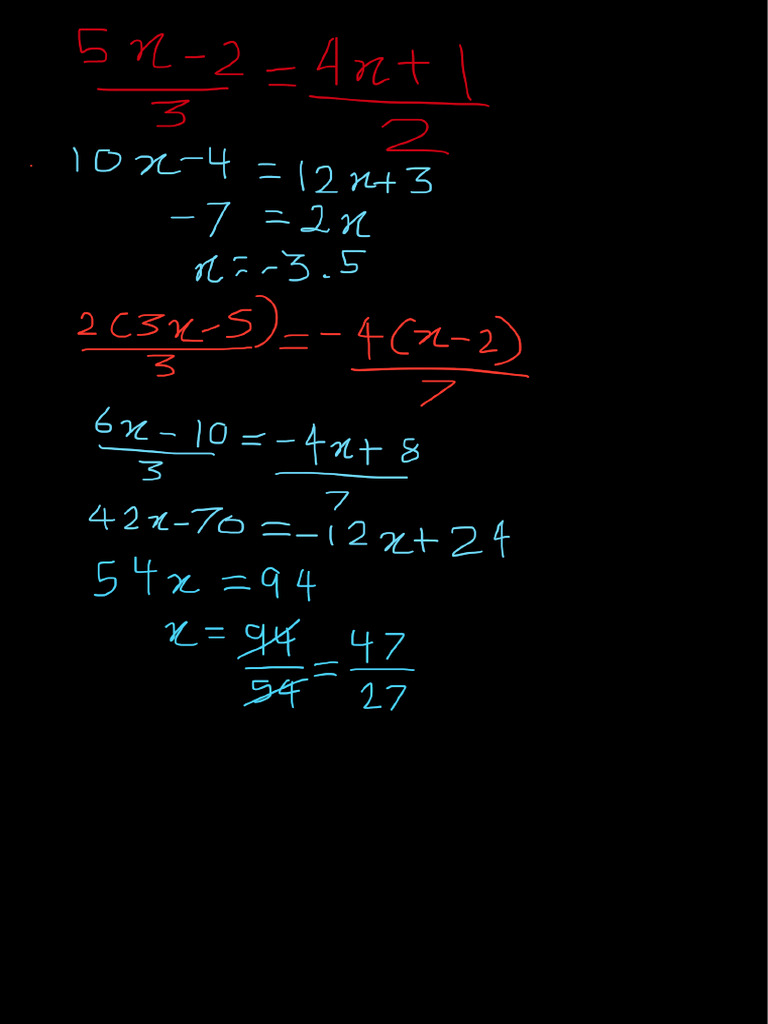 5x-2/3 = 4x+1/2
10x-4 = 12x+3
-7 = 2x
x = -3.5
2(3x-5)/3 = -4(x-2)/7
6x-10/3 = -4x+8/7
42x-70 = -12x+24
54x = 94
x = 94/54 = 47/27